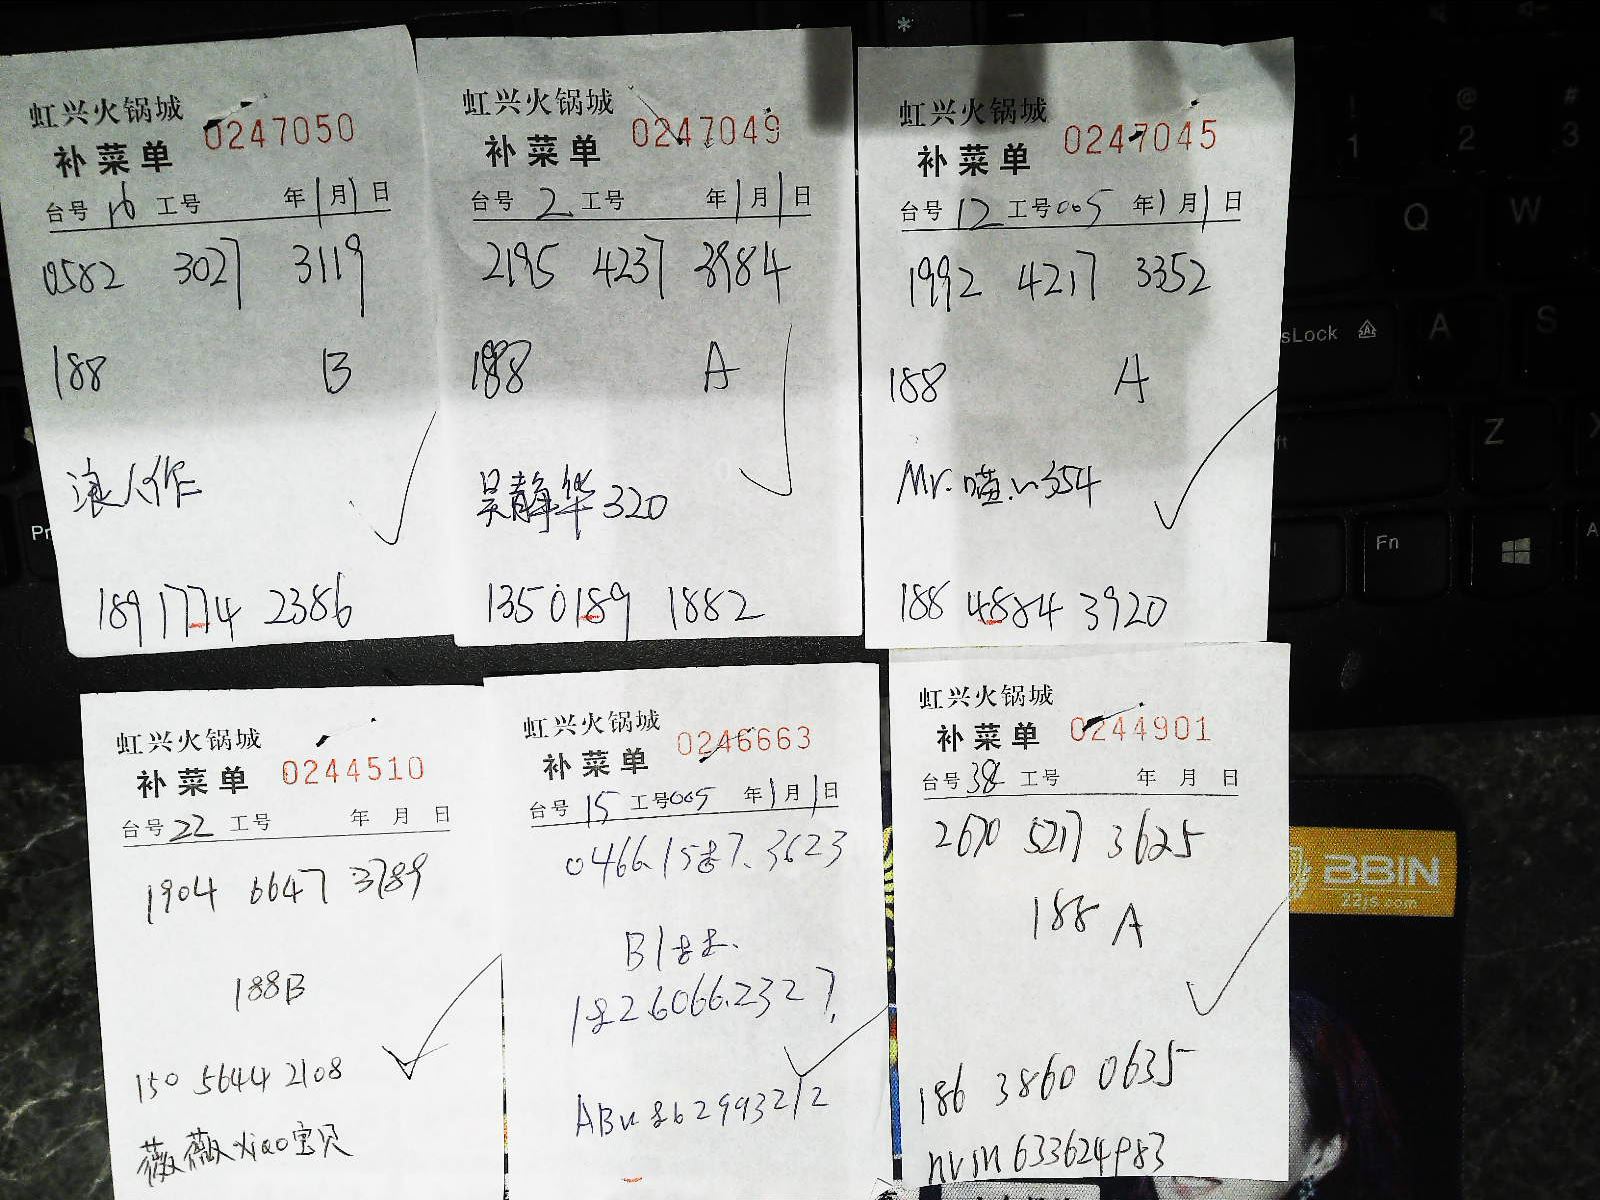 虹兴火锅城
补菜单 0247050
台号 16 工号 年1月1日
0582 3027 3119
188 B
浪人作
189 1774 2386
虹兴火锅城
补菜单 0247049
台号 2 工号 年1月1日
2195 4237 3984
188 A
吴静华320
1350189 1882
虹兴火锅城
补菜单 0247045
台号 12 工号005 年1月1日
1992 4217 3352
188 A
Mr.喵.
188 4884 3920
虹兴火锅城
补菜单 0244510
台号 22 工号 年 月 日
1904 6647 3789
188B
150 5644 2108
薇薇xiao宝贝
虹兴火锅城
补菜单 0246663
台号 15 工号005 年1月1日
0466.1587.3623
B188.
182.6066.2327.
ABu862993212
虹兴火锅城
补菜单 0244901
台号38 工号 年 月 日
2670 5217 3625
188 A
186 3860 0635
nvm633624983
! 1
@ 2
# 3
Q W
sLock A S
Z
Fn
BBIN
22js.com